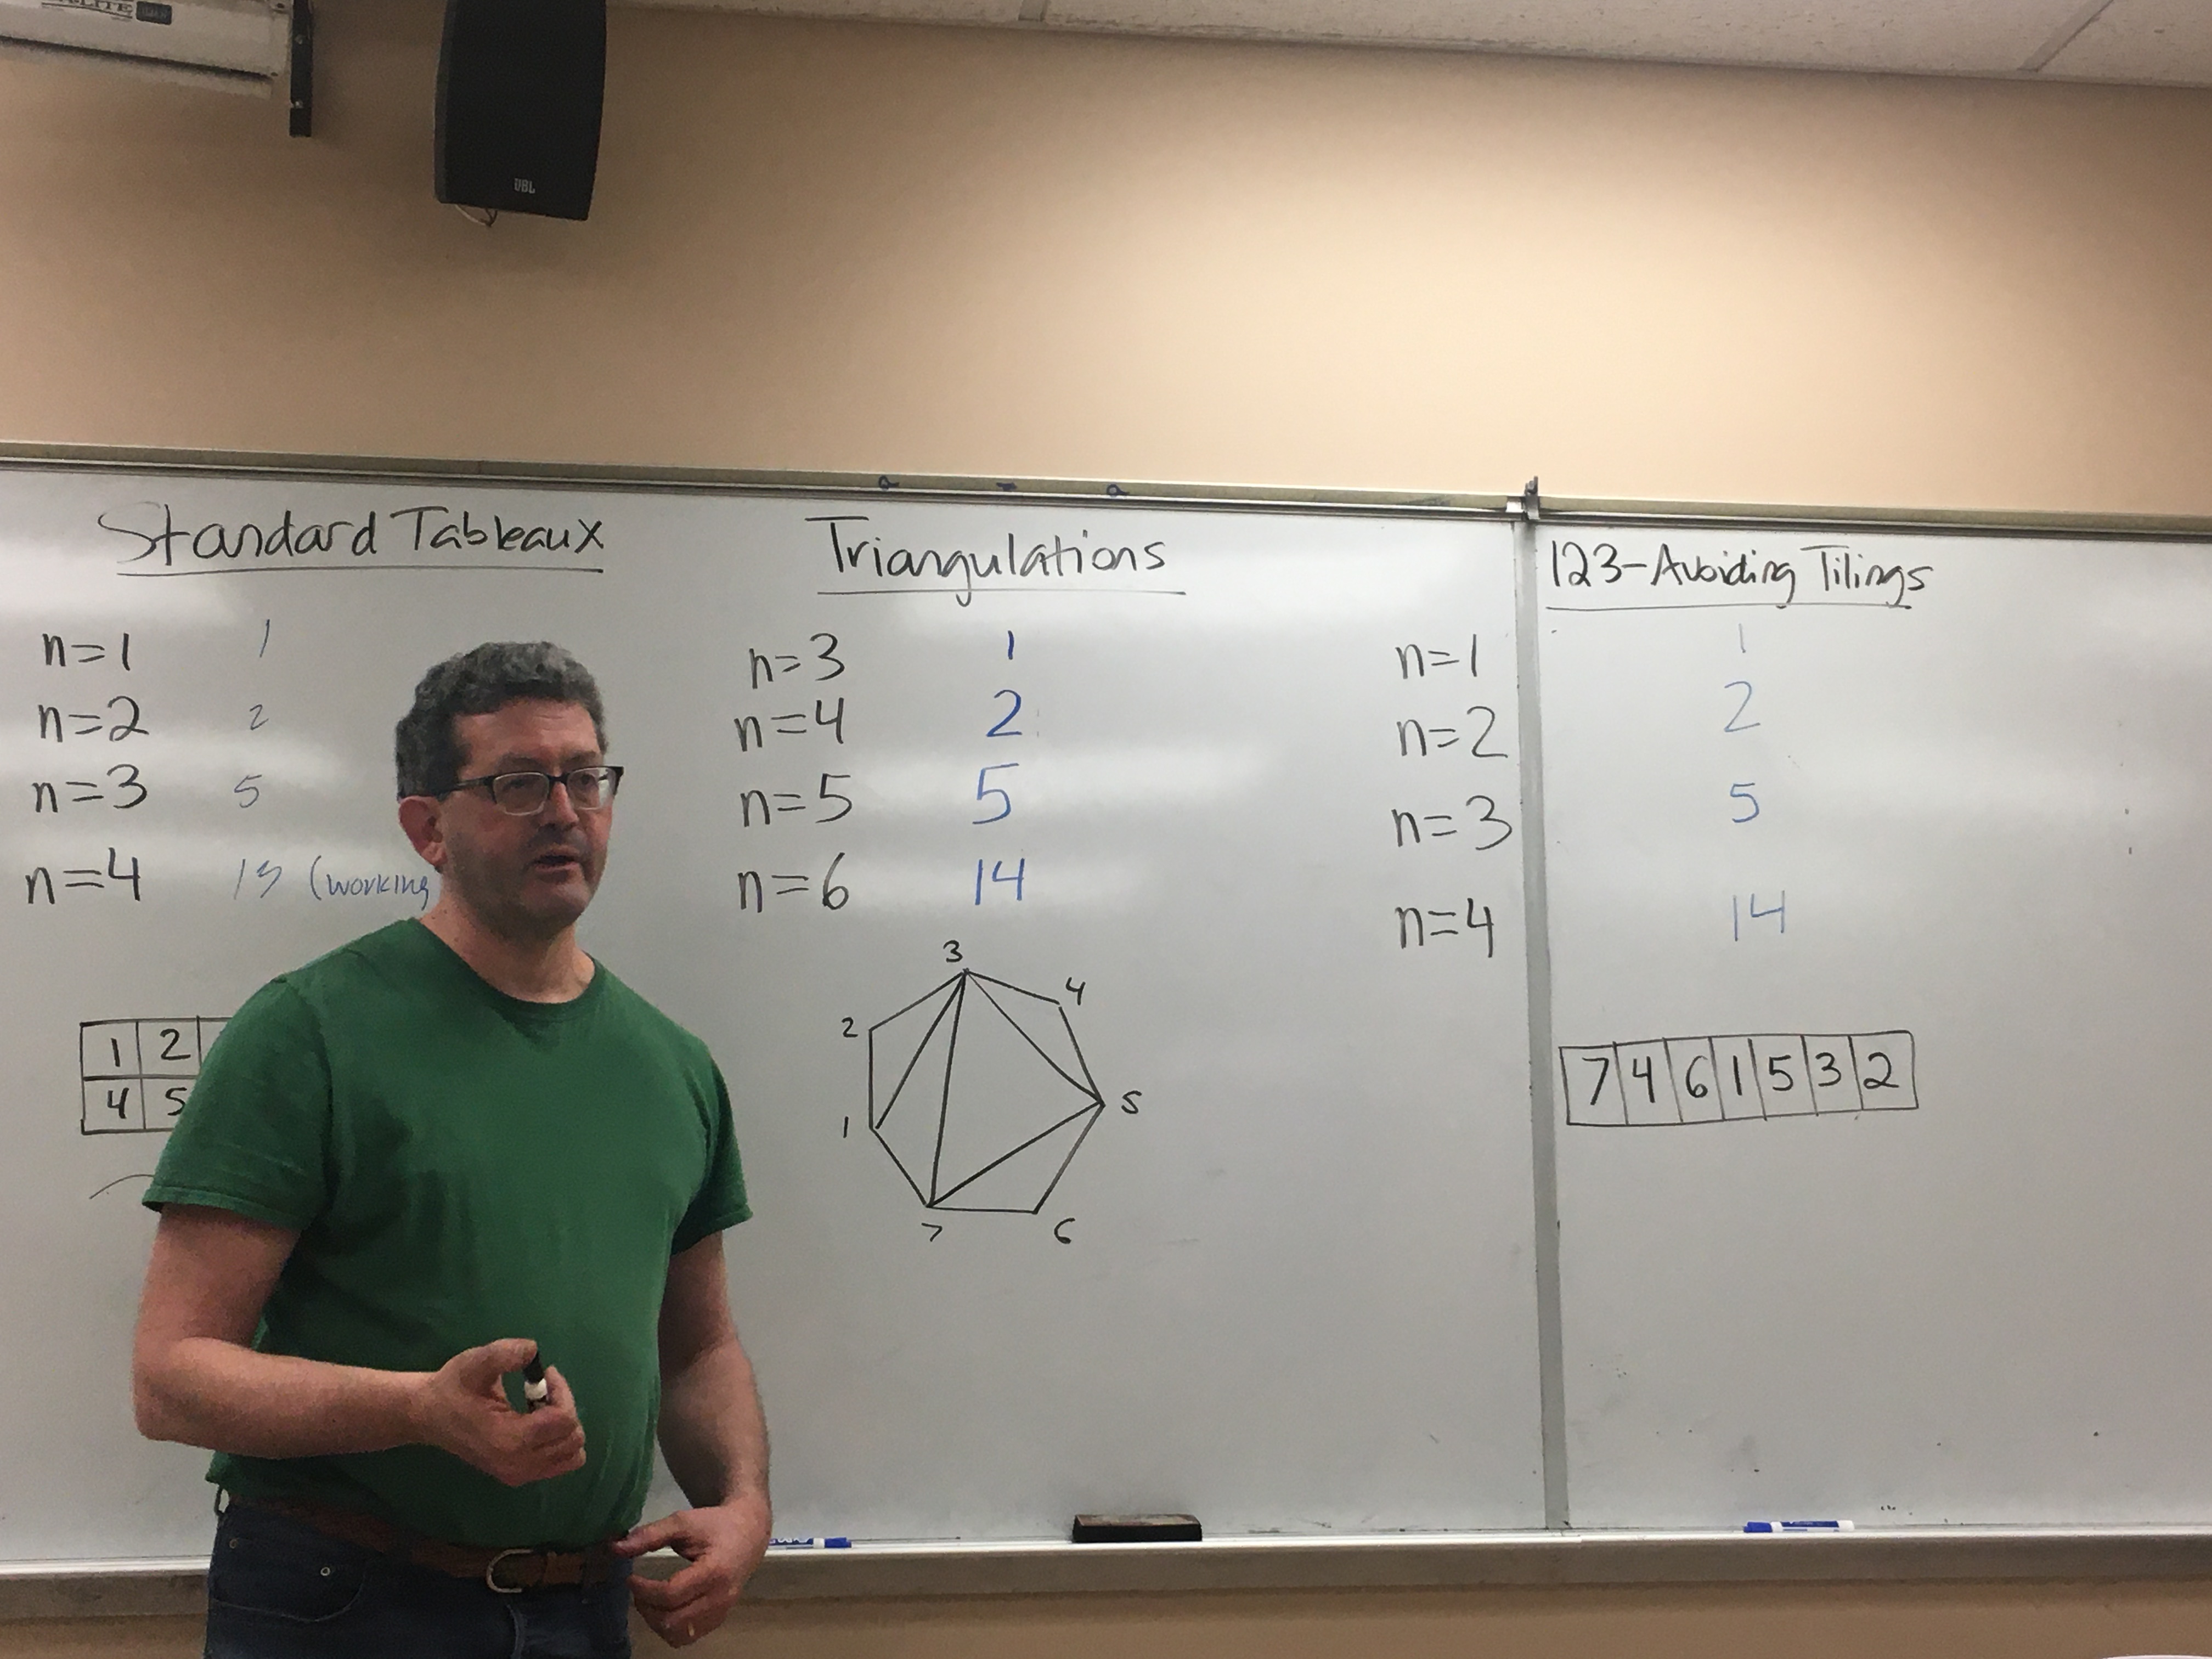 JBL
Standard Tableaux
n=1 1
n=2 2
n=3 5
n=4 13 (working
1 2
4 5
Triangulations
n=3 1
n=4 2
n=5 5
n=6 14
3
4
2
1
5
7
6
123-Avoiding Tilings
n=1 1
n=2 2
n=3 5
n=4 14
7 4 6 1 5 3 2